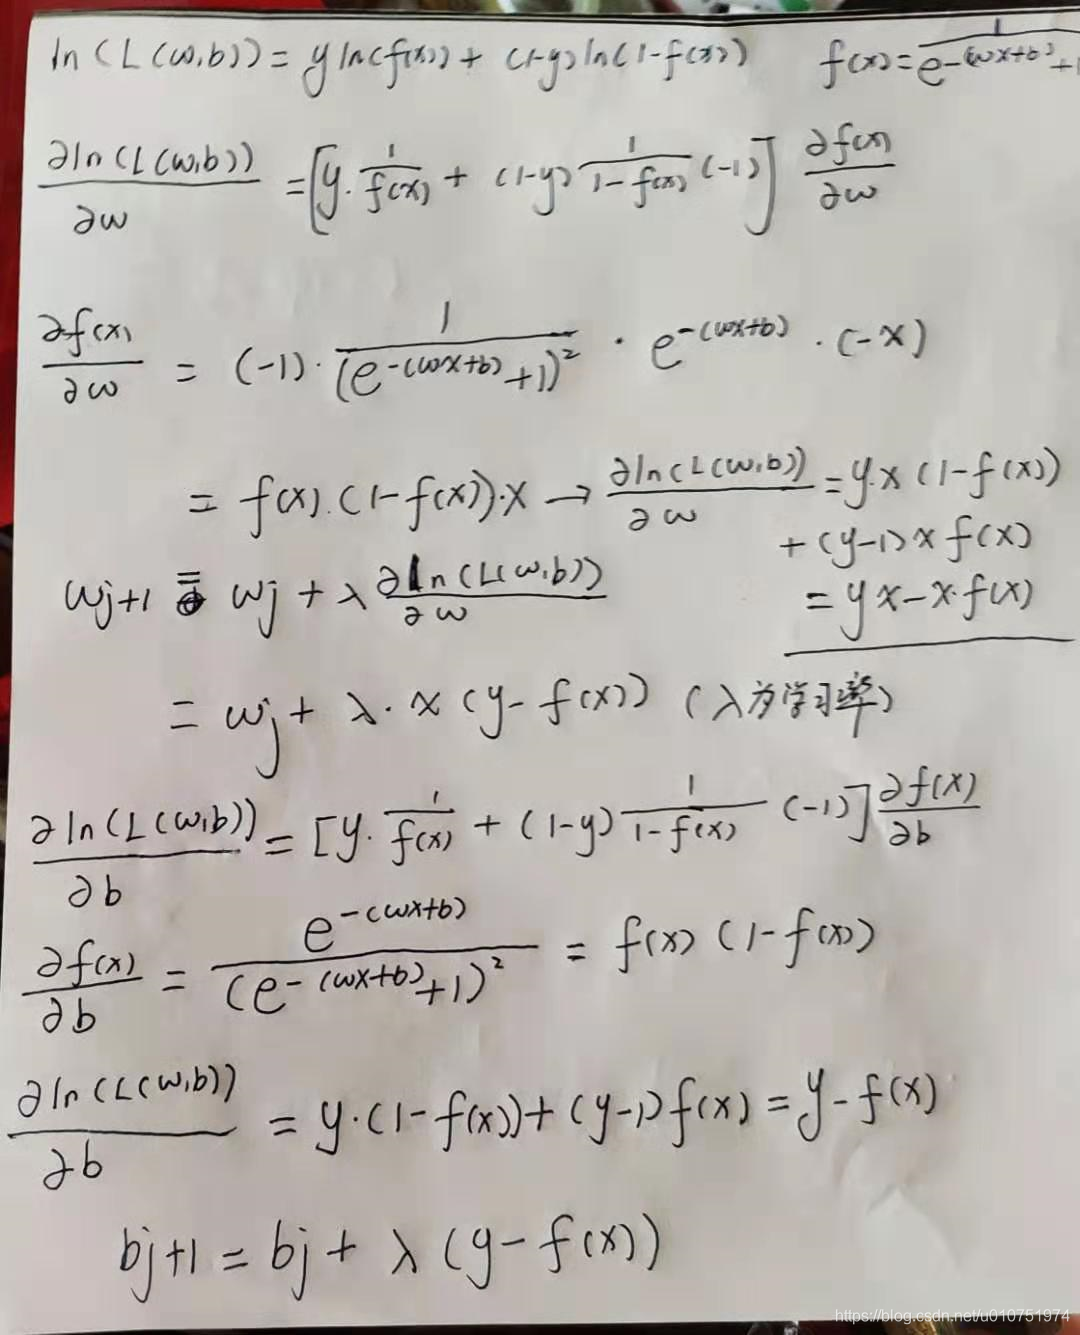 ln(L(w,b)) = y ln(f(x)) + (1-y) ln(1-f(x))   f(x) = 1/(e^-(wx+b) +1
∂ln(L(w,b))/∂w = [y·1/f(x) + (1-y) 1/(1-f(x)) (-1)] ∂f(x)/∂w
∂f(x)/∂w = (-1)·1/(e^-(wx+b) +1)² · e^-(wx+b) · (-x)
= f(x)·(1-f(x))·x → ∂ln(L(w,b))/∂w = y·x(1-f(x))
+(y-1)x f(x)
= yx-x·f(x)
wj+1 = wj + λ ∂ln(L(w,b))/∂w
= wj + λ·x(y-f(x)) (λ为学习率)
∂ln(L(w,b))/∂b = [y·1/f(x) + (1-y) 1/(1-f(x)) (-1)] ∂f(x)/∂b
∂f(x)/∂b = e^-(wx+b)/(e^-(wx+b) +1)² = f(x)(1-f(x))
∂ln(L(w,b))/∂b = y·(1-f(x))+(y-1)f(x) = y-f(x)
bj+1 = bj + λ(y-f(x))
https://blog.csdn.net/u010751974